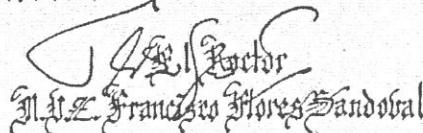 El Rector
M.V.Z. Francisco Flores Sandoval